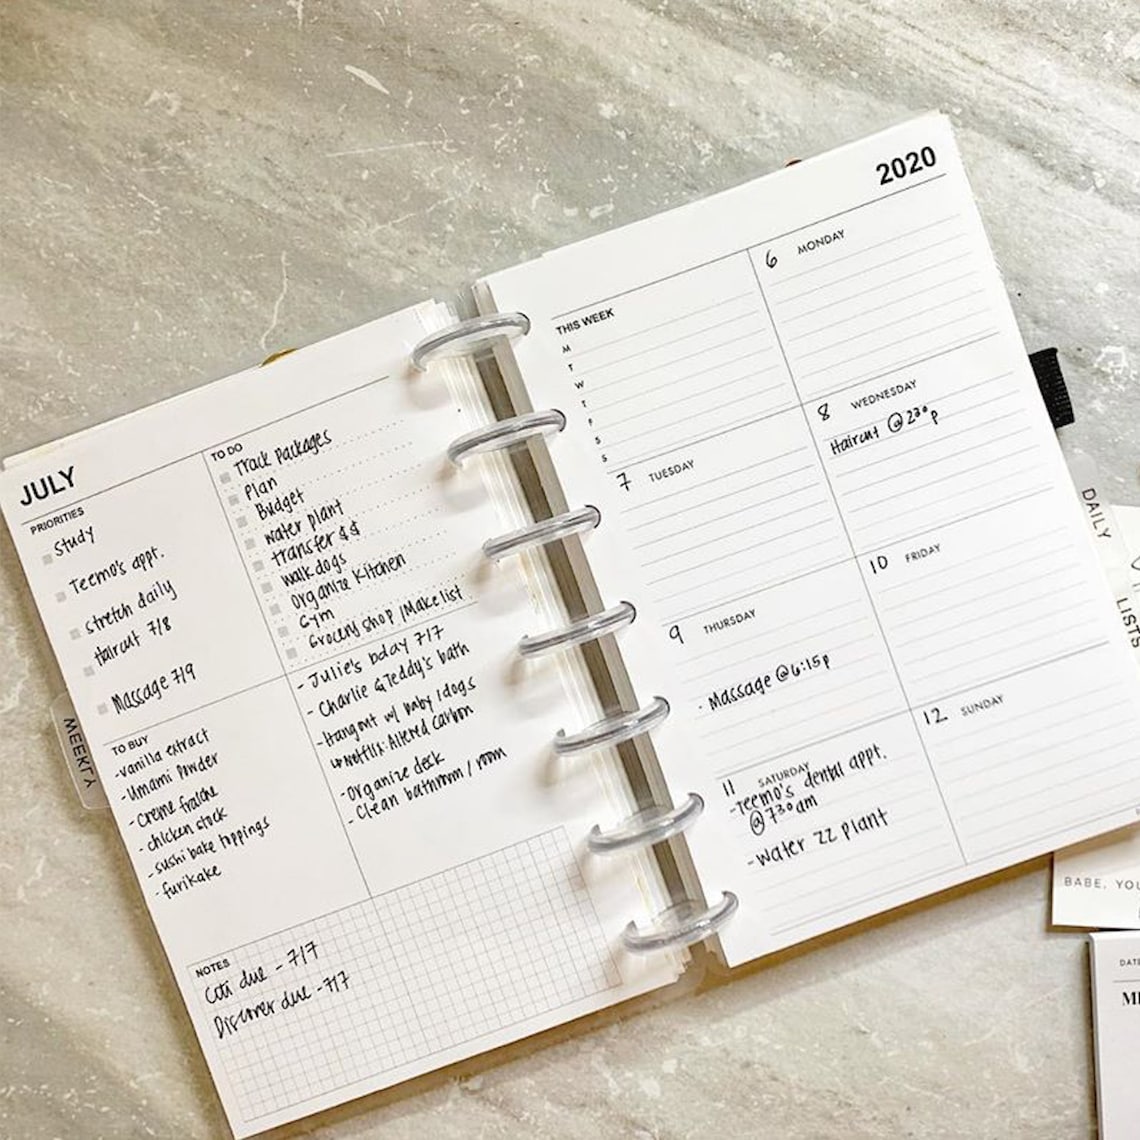 JULY
PRIORITIES
Study
Teemo's appt.
stretch daily
Haircut 7/8
Massage 7/9
TO DO
Track packages
Plan
Budget
water plant
transfer $$
walk dogs
Organize Kitchen
Gym
Grocery shop / Make list
TO BUY
- vanilla extract
- Umami Powder
- Creme fraiche
- chicken stock
- sushi bake toppings
- furikake
- Julie's bday 7/7
- Charlie & Teddy's bath
- Hangout w/ baby / dogs
↳ Netflix: Altered Carbon
- Organize deck
- Clean bathroom / room
NOTES
Citi due - 7/7
Discover due - 7/7
WEEKLY
2020
THIS WEEK
M
T
W
T
F
S
S
6 MONDAY
7 TUESDAY
8 WEDNESDAY
Haircut @ 2³⁰p
9 THURSDAY
· Massage @ 6:15p
10 FRIDAY
11 SATURDAY
- Teemo's dental appt.
@ 7³⁰am
- Water ZZ Plant
12 SUNDAY
DAILY
LISTS
BABE, YOU
DATE